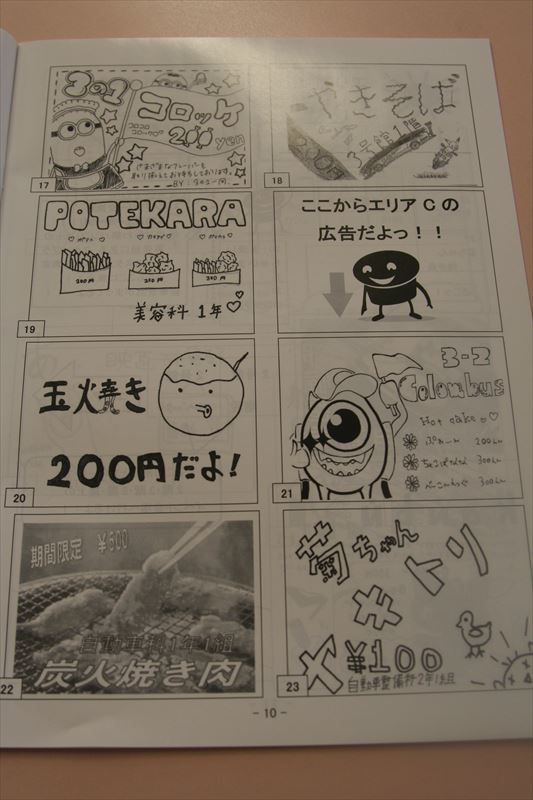 3の2
コロッケ
コロコロ
コロ〜ック♡
200 yen
さまざまなフレーバーを
とり揃えてお待ちしております。
BY：3の2一同。
17
やきそば
3号館1階
200円
18
POTEKARA
♡ポテト♡
♡カラアゲ♡
200円
200円
200円
美容科 1年♡
19
ここからエリア C の
広告だよっ！！
玉火焼き
200円だよ!
20
3-2
Colombus
Hot cake ♡
ぷれーん 200えん
ちょこばなな 300えん
べーこんえっぐ 300えん
21
期間限定 ¥500
自動車科1年1組
炭火焼き肉
22
菊ちゃん
ヤキトリ
¥100
自動車整備科2年1組
23
- 10 -